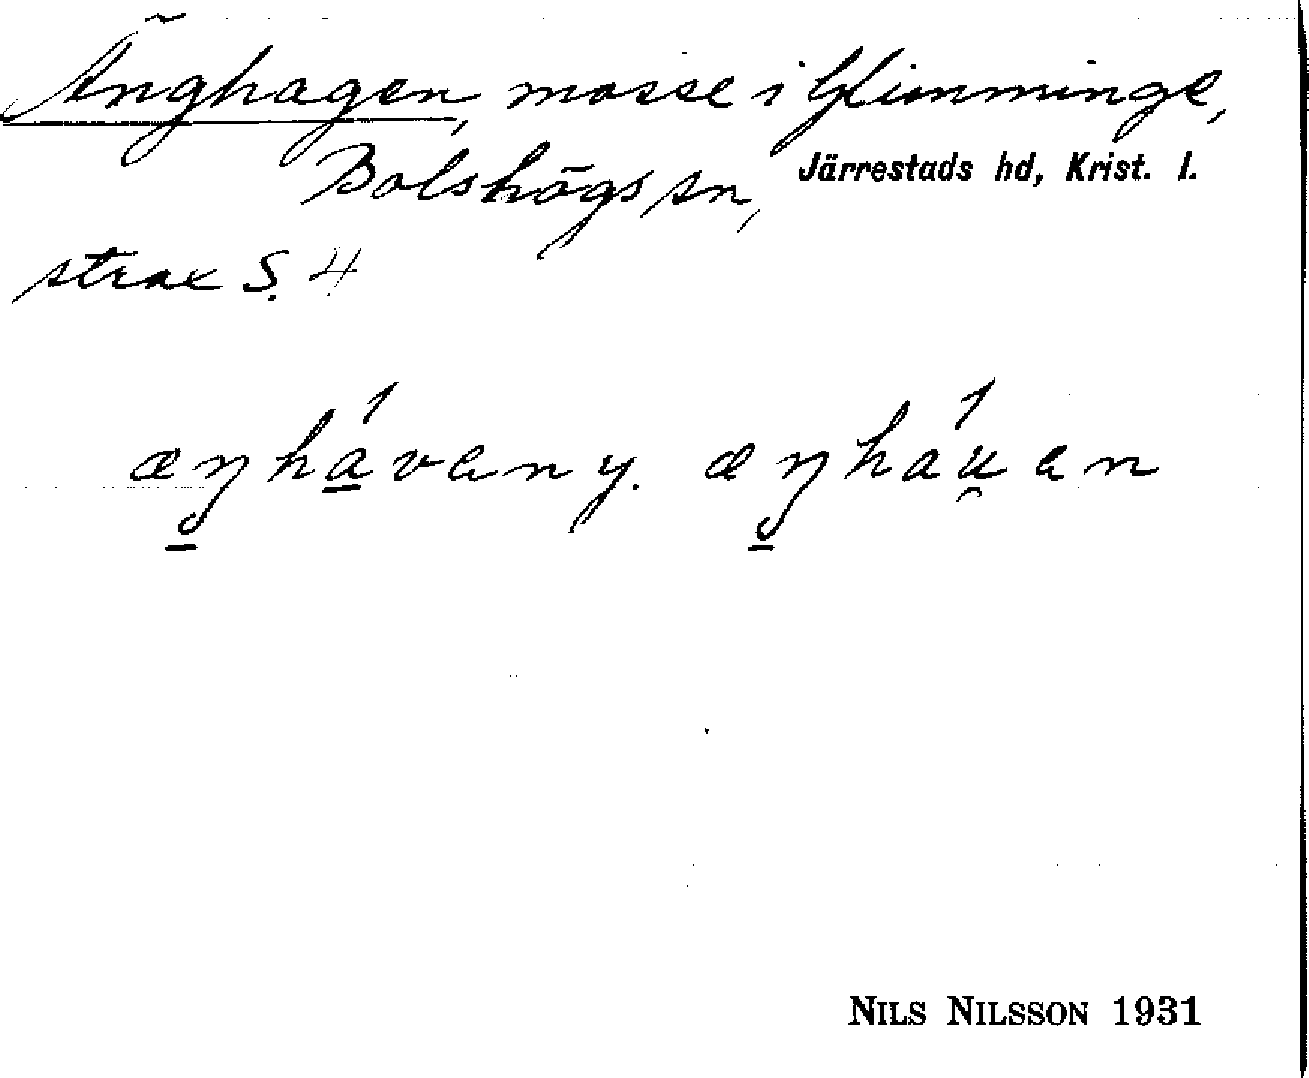 Änghagen, mosse i Glimminge,
Bolshögs sn, Järrestads hd, Krist. l.
strax S. 4
æŋhávany. æŋháu̯en
NILS NILSSON 1931